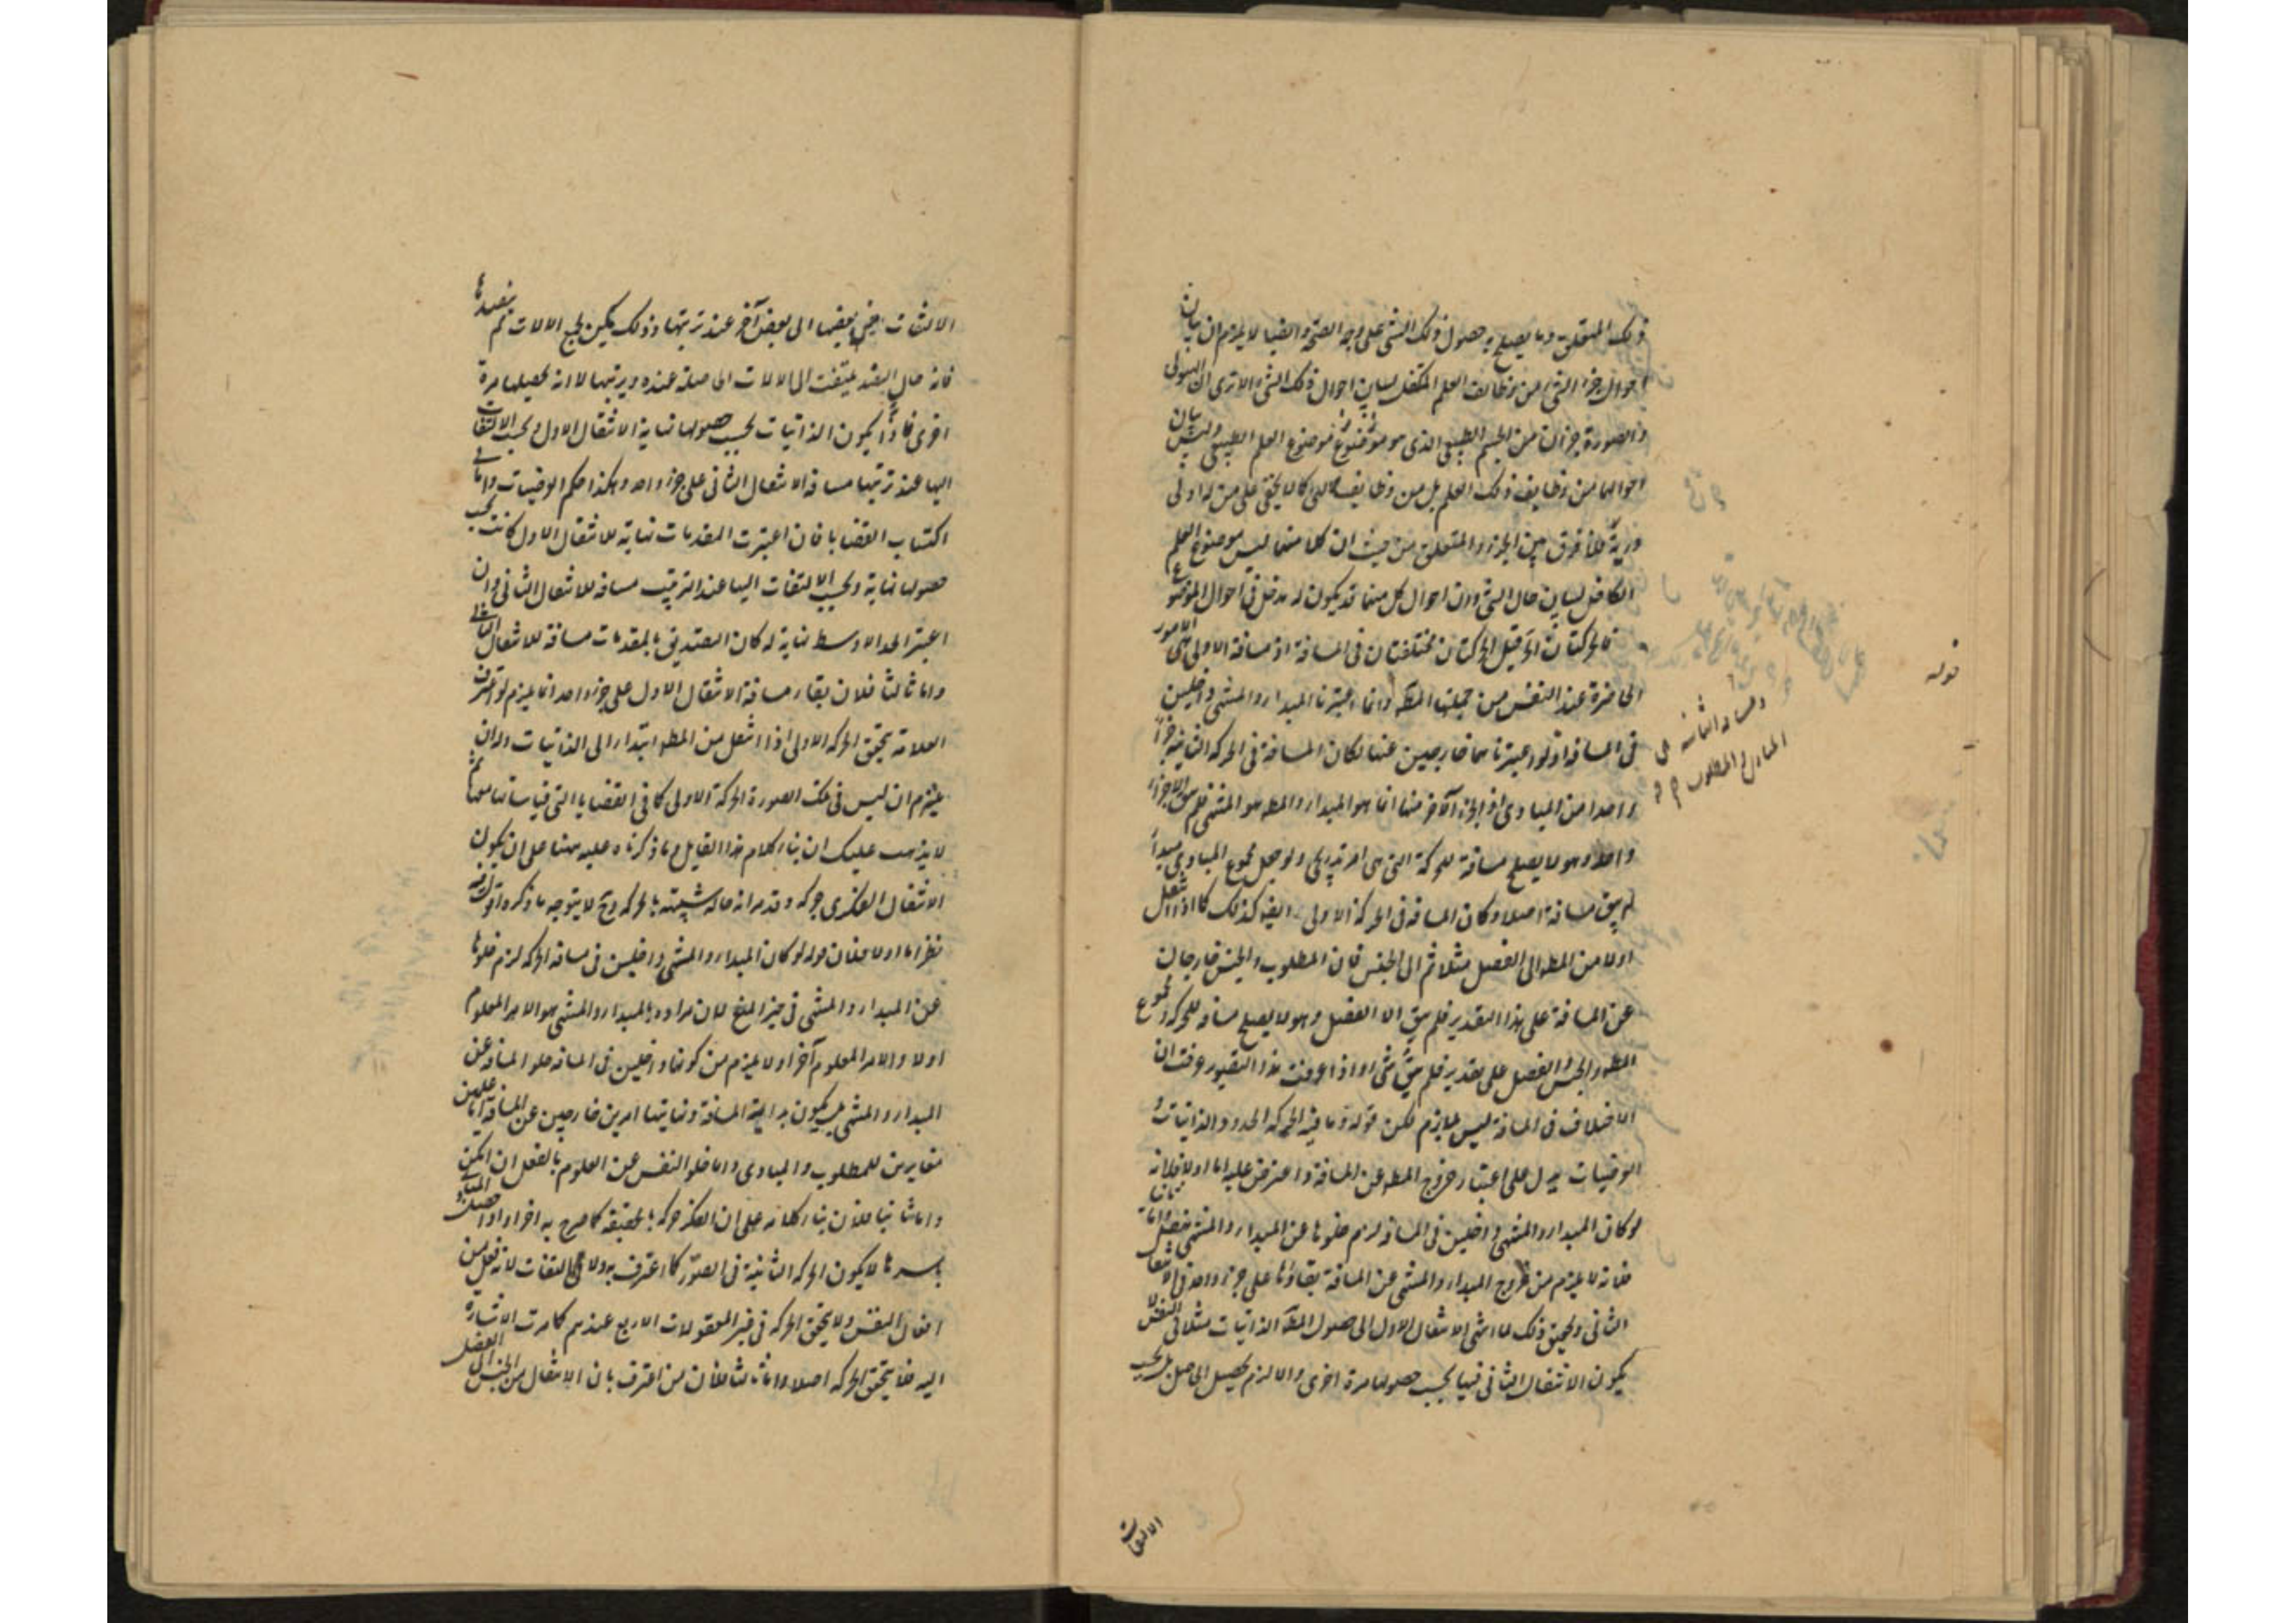 ذلك المتعلق وما يصلح به حصول ذلك الشئ على وجه الصحة والضبا لا يلزم ان بيان
احوال جزء الشئ من وظائف العلم المتكفل لبيان احوال ذلك الشئ الا ترى ان الهيولى
والصورة جزان من الجسم الطبيعى الذى هو موضوع العلم الطبيعى وليس بيان
احوالهما من وظايف ذلك العلم بل من وظايف كما لا يخفى على من له ادنى
دربة فلا فرق بين الجزء والمتعلق من حيث ان كلا منهما ليس موضوع العلم
الكافل لبيان حال الشئ وان احوال كل منهما قد يكون له مدخل فى احوال الموضوع
فالحركتان الخ قيل الحركتان مختلفتان فى المسافة اذ مسافة الاولى هى الامور
الحاضرة عند النفس من جملتها المط وانما اعتبرنا المبدا والمنتهى داخلين
فى المسافة اذ لو اعتبرناهما خارجين عنها لكان المسافة فى الحركة الثانية جزأ
واحدا من المبادى اذ الجزء الآخر منها انما هو المبدا والمط هو المنتهى فلم يبق الا جزء
واحد وهو لا يصلح مسافة للحركة التى هى امر تدريجى ولو جعل مجموع المبادى مبدأ
لم يبق مسافة اصلا وكان المسافة فى الحركة الاولى ايضا كذلك كما اذا انتقل
اولا من المط الى الفصل مثلا ثم الى الجنس فان المطلوب والجنس خارجان
عن المسافة على هذا التقدير فلم يبق الا الفصل وهو لا يصلح مسافة للحركة ومجموع
المط والجنس والفصل على تقدير فلم يبق شئ واذا عرفت هذا التقرير عرفت ان
الاختلاف فى المسافة ليس بلازم لكن قوله وما فيه الحركة الحدود والذاتيات و
العرضيات يدل على اعتبار خروج المط عن المسافة واعترض عليه اما اولا فلانه
لو كان المبدا والمنتهى داخلين فى المسافة لزم خلوها عن المبدا والمنتهى واما ثانيا
فانه لا يلزم من خروج المبدا والمنتهى عن المسافة بقاؤها على جزء واحد فى الانتقال
الثانى وتحقيق ذلك لما انتهى الانتقال الاول الى حصول الذاتيات مثلا فى النفس لا
يكون الانتقال الثانى فيها بحسب حصولها مرة اخرى والا لزم تحصيل الحاصل بل بحسب
قوله
ومسافة الثانية هى
المبادى والمطلوب
الالتفات
الالتفات من بعضها الى بعض آخر عند ترتبها وذلك يمكن بجمع الالات ثم
فانه حال يلتفت الى الالات الحاصلة عنده ويرتبها لا انه يحصلها مرة
اخرى فاذا يكون الذاتيات بحسب حصولها نهاية الانتقال الاول وبحسب الالتفات
اليها عند ترتبها مسافة الانتقال الثانى على جزء واحد وهكذا حكم العرضيات واما فى
اكتساب القضايا فان اعتبرت المقدمات نهاية للانتقال الاول كانت بحسب
حصولها نهاية وبحسب الالتفات اليها عند الترتيب مسافة للانتقال الثانى وان
اعتبر الحد الاوسط نهاية له كان التصديق بالمقدمات مسافة للانتقال الثانى
واما ثالثا فلان بقاء مسافة الانتقال الاول على جزء واحد انما يلزم لو اعترف
العلامة بتحقق الحركة الاولى اذا انتقل من المط ابتداء الى الذاتيات وله ان
يلتزم ان ليس فى تلك الصورة الحركة الاولى كما فى القضايا التى قياساتها معها ثم
لا يذهب عليك ان بناء كلام هذا القايل وما ذكرناه عليه مبنيا على ان يكون
الانتقال الفكرى حركة وقد مر انه حالة شبيهة بالحركة وح لا يتوجه ما ذكره اقول فيه
نظر اما اولا فلان قوله لو كان المبدا والمنتهى داخلين فى مسافة الحركة لزم خلوها
عن المبدا والمنتهى فى حيز المنع لان مراده بالمبدا والمنتهى هو الامر المعلوم
اولا والامر المعلوم آخرا ولا يلزم من كونهما داخلين فى المسافة خلو المسافة عن
المبدا والمنتهى بل يكون بداية المسافة ونهايتها امرين خارجين عن المسافة
مغايرين للمطلوب والمبادى واما خلو النفس عن العلوم بالفعل ان امكن
واما ثانيا فلان بناء كلامه على ان الفكر حركة بالحقيقة كما صرح به
باسرها لا يكون الحركة الثانية فى الصور كما اعترف به ولا فى الالتفات لانه فعل من
افعال النفس ولا يتحقق الحركة فى غير المقولات الاربع عندهم كما مرت الاشارة
اليه فلا يتحقق الحركة اصلا واما ثالثا فلان من اعترف بان الانتقال من الجنس الى الفصل